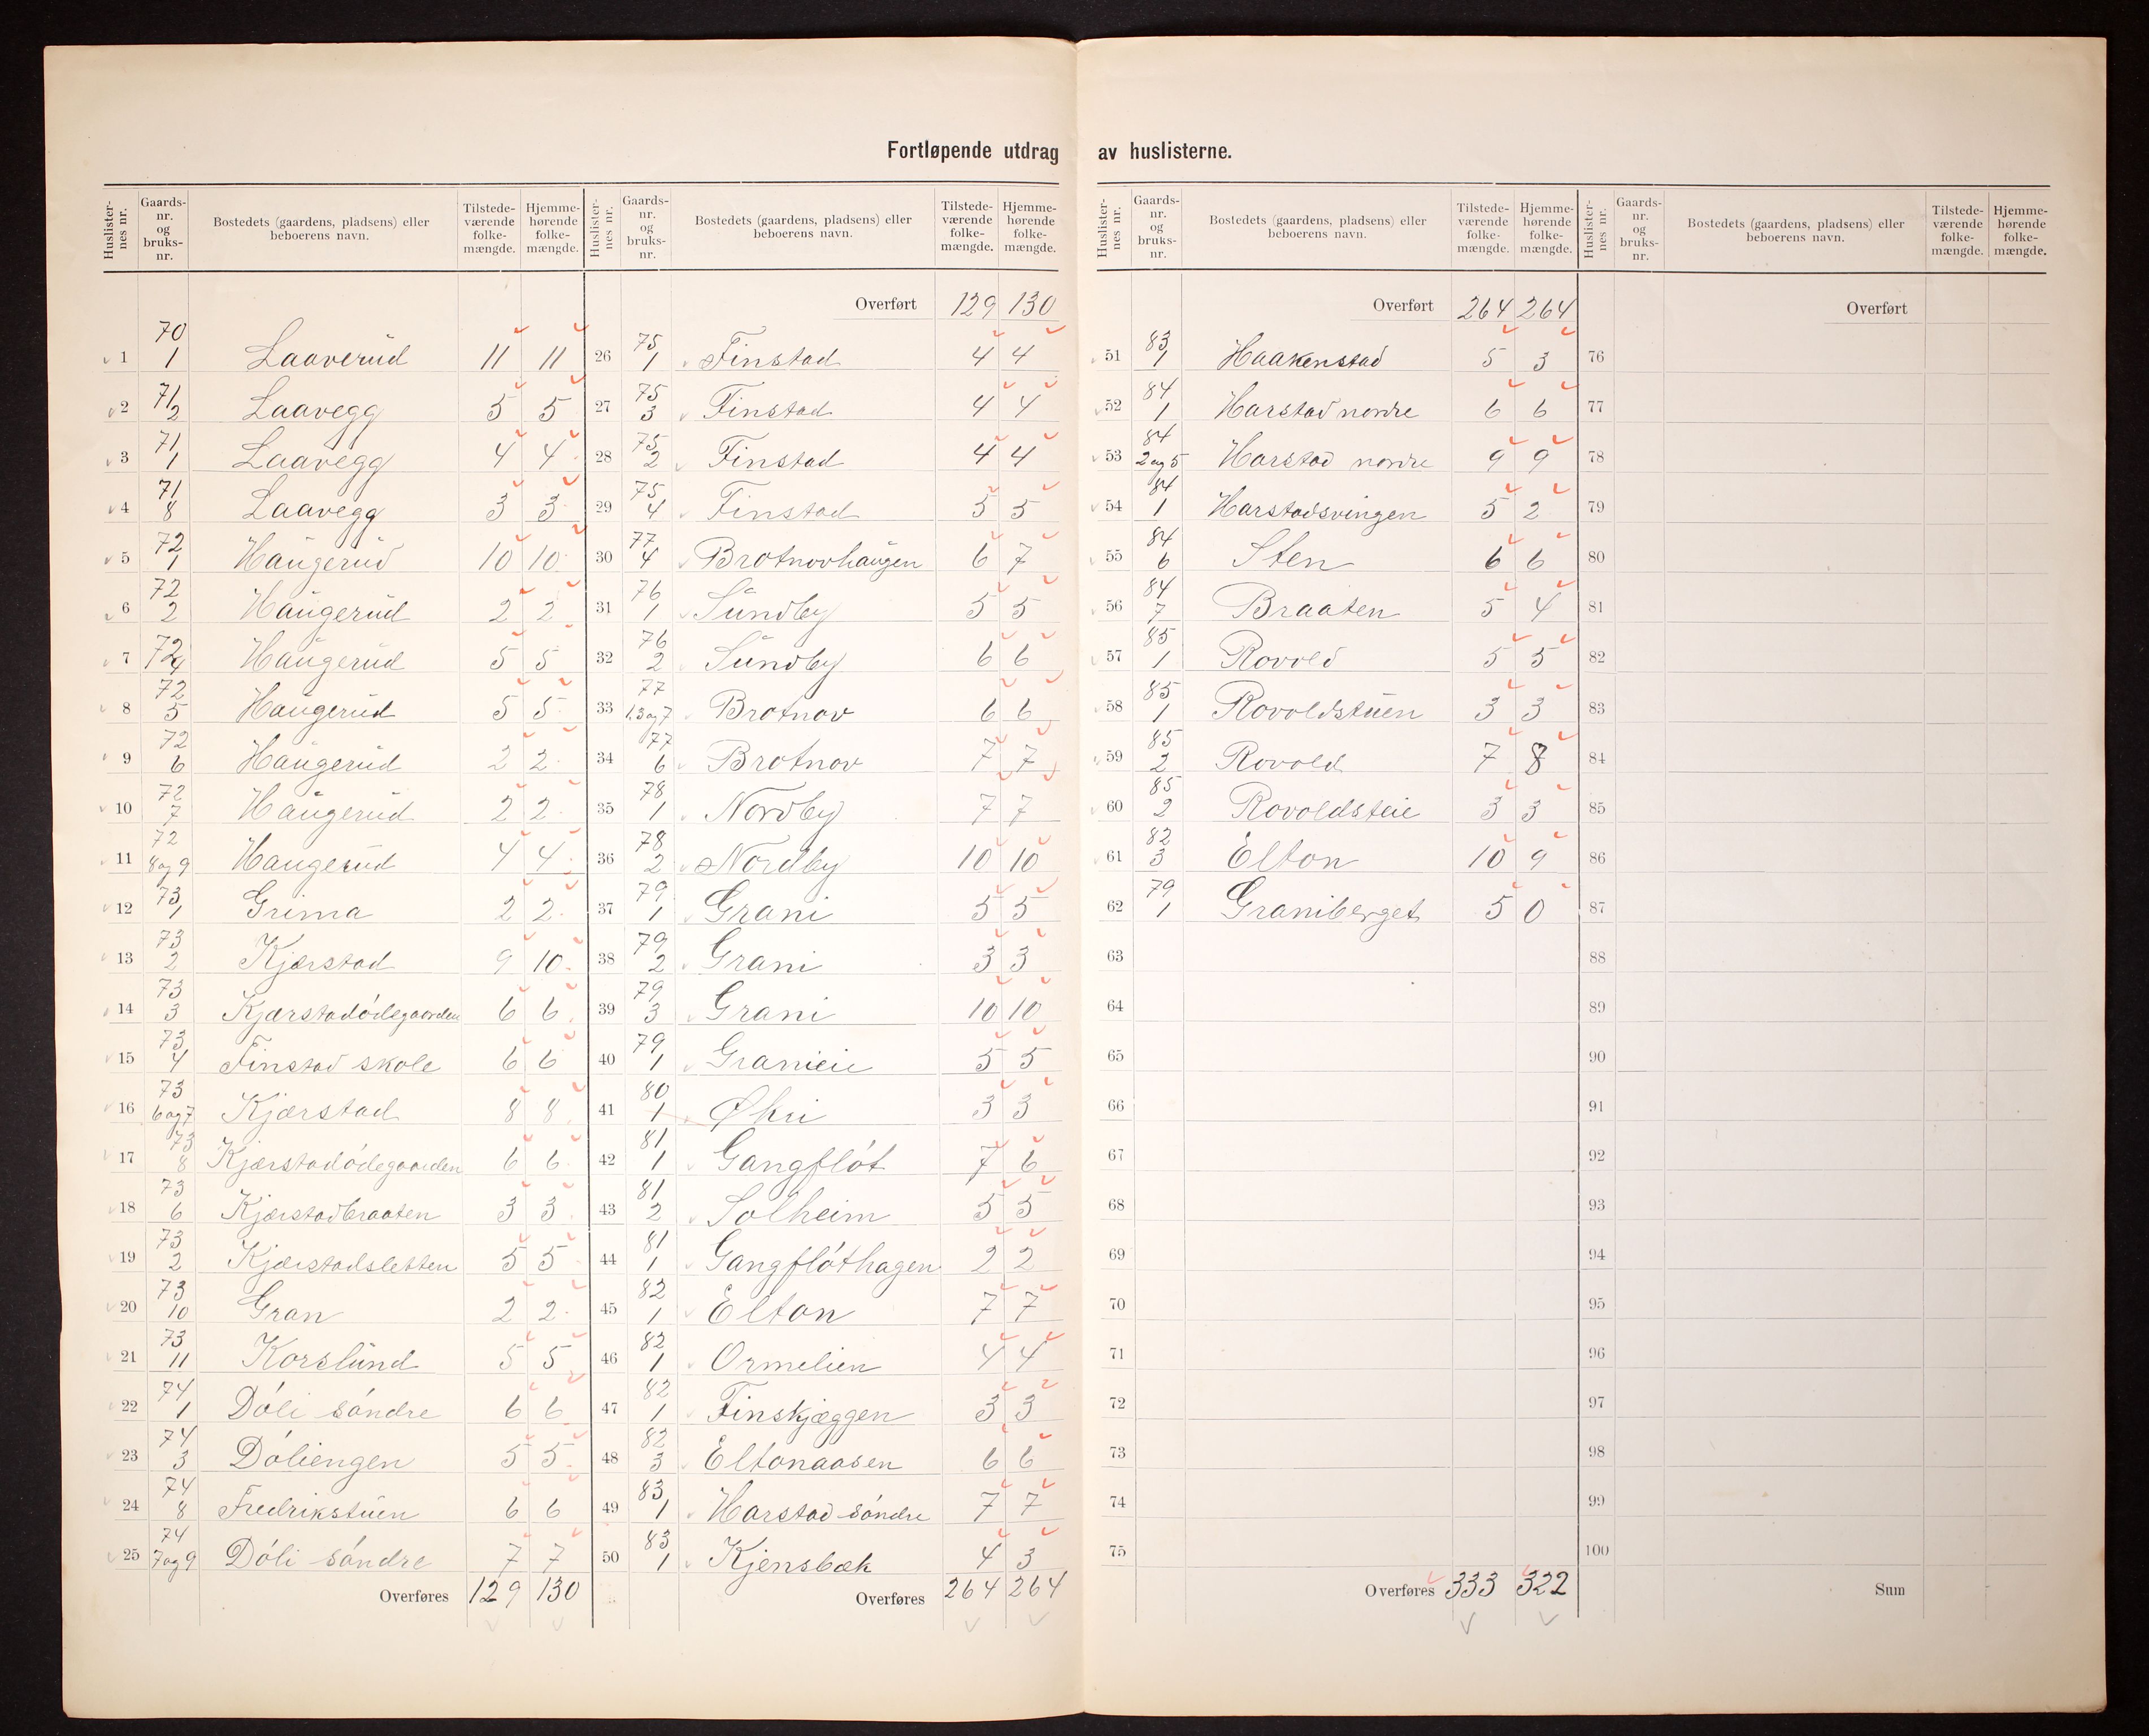 Fortløpende utdrag av huslisterne.
Huslister-nes nr. Gaards-nr. og bruks-nr. Bostedets (gaardens, pladsens) eller beboerens navn. Tilstede-værende folke-mængde. Hjemme-hørende folke-mængde.
1 70/1 Laaverud 11 11
2 71/2 Laavegg 5 5
3 71/1 Laavegg 4 4
4 71/8 Laavegg 3 3
5 72/1 Haugerud 10 10
6 72/2 Haugerud 2 2
7 72/4 Haugerud 5 5
8 72/5 Haugerud 5 5
9 72/6 Haugerud 2 2
10 72/7 Haugerud 2 2
11 72/8 og 9 Haugerud 4 4
12 73/1 Grima 2 2
13 73/2 Kjærstad 9 10
14 73/3 Kjærstadödegaarden 6 6
15 73/4 Finstad skole 6 6
16 73/6 og 7 Kjærstad 8 8
17 73/8 Kjærstadödegaarden 6 6
18 73/6 Kjærstadbraaten 3 3
19 73/2 Kjærstadsletten 5 5
20 73/10 Gran 2 2
21 73/11 Korslund 5 5
22 74/1 Döli söndre 6 6
23 74/3 Döliengen 5 5
24 74/8 Fredrikstuen 6 6
25 74/7 og 9 Döli söndre 7 7
Overføres 129 130
Huslister-nes nr. Gaards-nr. og bruks-nr. Bostedets (gaardens, pladsens) eller beboerens navn. Tilstede-værende folke-mængde. Hjemme-hørende folke-mængde.
Overført 129 130
26 75/1 Finstad 4 4
27 75/3 Finstad 4 4
28 75/2 Finstad 4 4
29 75/4 Finstad 5 5
30 77/4 Brotnovhaugen 6 7
31 76/1 Sundby 5 5
32 76/2 Sundby 6 6
33 77/1.5 og 7 Brotnov 6 6
34 77/6 Brotnov 7 7
35 78/1 Nordby 7 7
36 78/2 Nordby 10 10
37 79/1 Grani 5 5
38 79/2 Grani 3 3
39 79/3 Grani 10 10
40 79/1 Granieie 5 5
41 80/1 Øhri 3 3
42 81/1 Gangflöt 7 6
43 81/2 Solheim 5 5
44 81/1 Gangflöthagen 2 2
45 82/1 Elton 7 7
46 82/1 Ormelien 4 4
47 82/1 Finskjæggen 3 3
48 82/3 Eltonaasen 6 6
49 83/1 Harstad söndre 7 7
50 83/1 Kjensbæk 4 3
Overføres 264 264
Huslister-nes nr. Gaards-nr. og bruks-nr. Bostedets (gaardens, pladsens) eller beboerens navn. Tilstede-værende folke-mængde. Hjemme-hørende folke-mængde.
Overført 264 264
51 83/1 Haakenstad 5 3
52 84/1 Harstad nordre 6 6
53 84/2 og 5 Harstad nordre 9 9
54 84/1 Harstadsvingen 5 2
55 84/6 Sten 6 6
56 84/7 Braaten 5 4
57 85/1 Rovold 5 5
58 85/1 Rovoldstuen 3 3
59 85/2 Rovold 7 8
60 85/2 Rovoldsteie 3 3
61 82/3 Elton 10 9
62 79/1 Graniberget 5 0
63
64
65
66
67
68
69
70
71
72
73
74
75
Overføres 333 322
Huslister-nes nr. Gaards-nr. og bruks-nr. Bostedets (gaardens, pladsens) eller beboerens navn. Tilstede-værende folke-mængde. Hjemme-hørende folke-mængde.
Overført
76
77
78
79
80
81
82
83
84
85
86
87
88
89
90
91
92
93
94
95
96
97
98
99
100
Sum